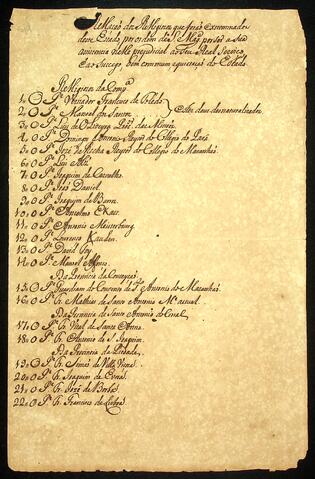 Relação dos Religiozos que forão exterminados
deste Estado por ordem de S. Mag.e por ser a sua
assistencia nelle prejudicial ao Seu Real Serviço,
e ao socego, bem commum e quietação do Estado.
Religiozos da Comp.a
1.o O P.e Vizitador Francisco de Toledo
2.o O P.e Manoel Gon
Estes dous desnaturalizados
3.o O P.e Luis de Oliveyra das
4.o O P.e Domingos Reytor do Collegio do Pará
5.o O P.e José da Rocha Reytor do Collegio do Maranhão
6.o O P.e Luis Alz
7.o O P.e Joaquim de Carvalho
8.o O P.e João Daniel
9.o O P.e Joaquim de Barros
10.o O P.e Anselmo Ekart
11.o O P.e Antonio Meisterburg
12.o O P.e Lourenço Kaulen
13.o O P.e David Fay
14.o O P.e Manoel Affonso
Da Provincia da Conceyção
15.o O P.e Guardiam do Convento de S.to Antonio do Maranhão
16.o O P.e Fr. Mathias de Santo Antonio
Da Provincia de Santo Antonio do Curral
17.o O P.e Fr. Vital de Santa Anna
18.o O P.e Fr. Antonio de S. Joaquim
Da Provincia da Piedade
19.o O P.e Fr. de Villa Viçosa
20.o O P.e Fr. Joaquim de Evora
21.o O P.e Fr. José de Borba
22.o O P.e Fr. Francisco de Lisboa